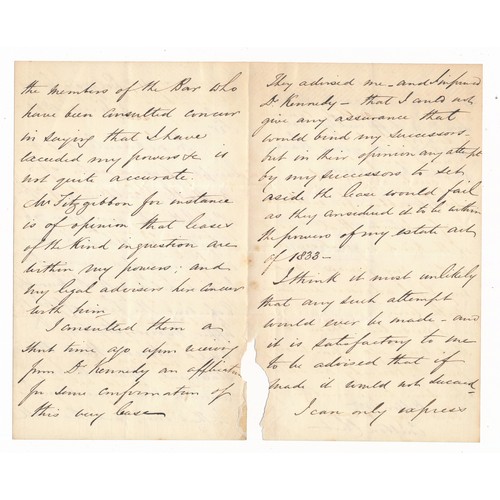 the members of the Bar who
have been consulted concur
in saying that I have
exceeded my powers &c is
not quite accurate.
Mr Fitzgibbon for instance
is of opinion that leases
of the kind in question are
within my powers; and
my legal advisers here concur
with him
I consulted them a
short time ago upon receiving
from Dr. Kennedy an application
for some confirmation of
this very lease
They advised me - and I informed
Dr Kennedy - that I could not
give any assurance that
would bind my successors -
but in their opinion any attempt
by my successors to set
aside the lease would fail
as they considered it to be within
the powers of my estate act
of 1833 -
I think it most unlikely
that any such attempt
would ever be made - and
it is satisfactory to me
to be advised that if
made it would not succeed -
I can only express